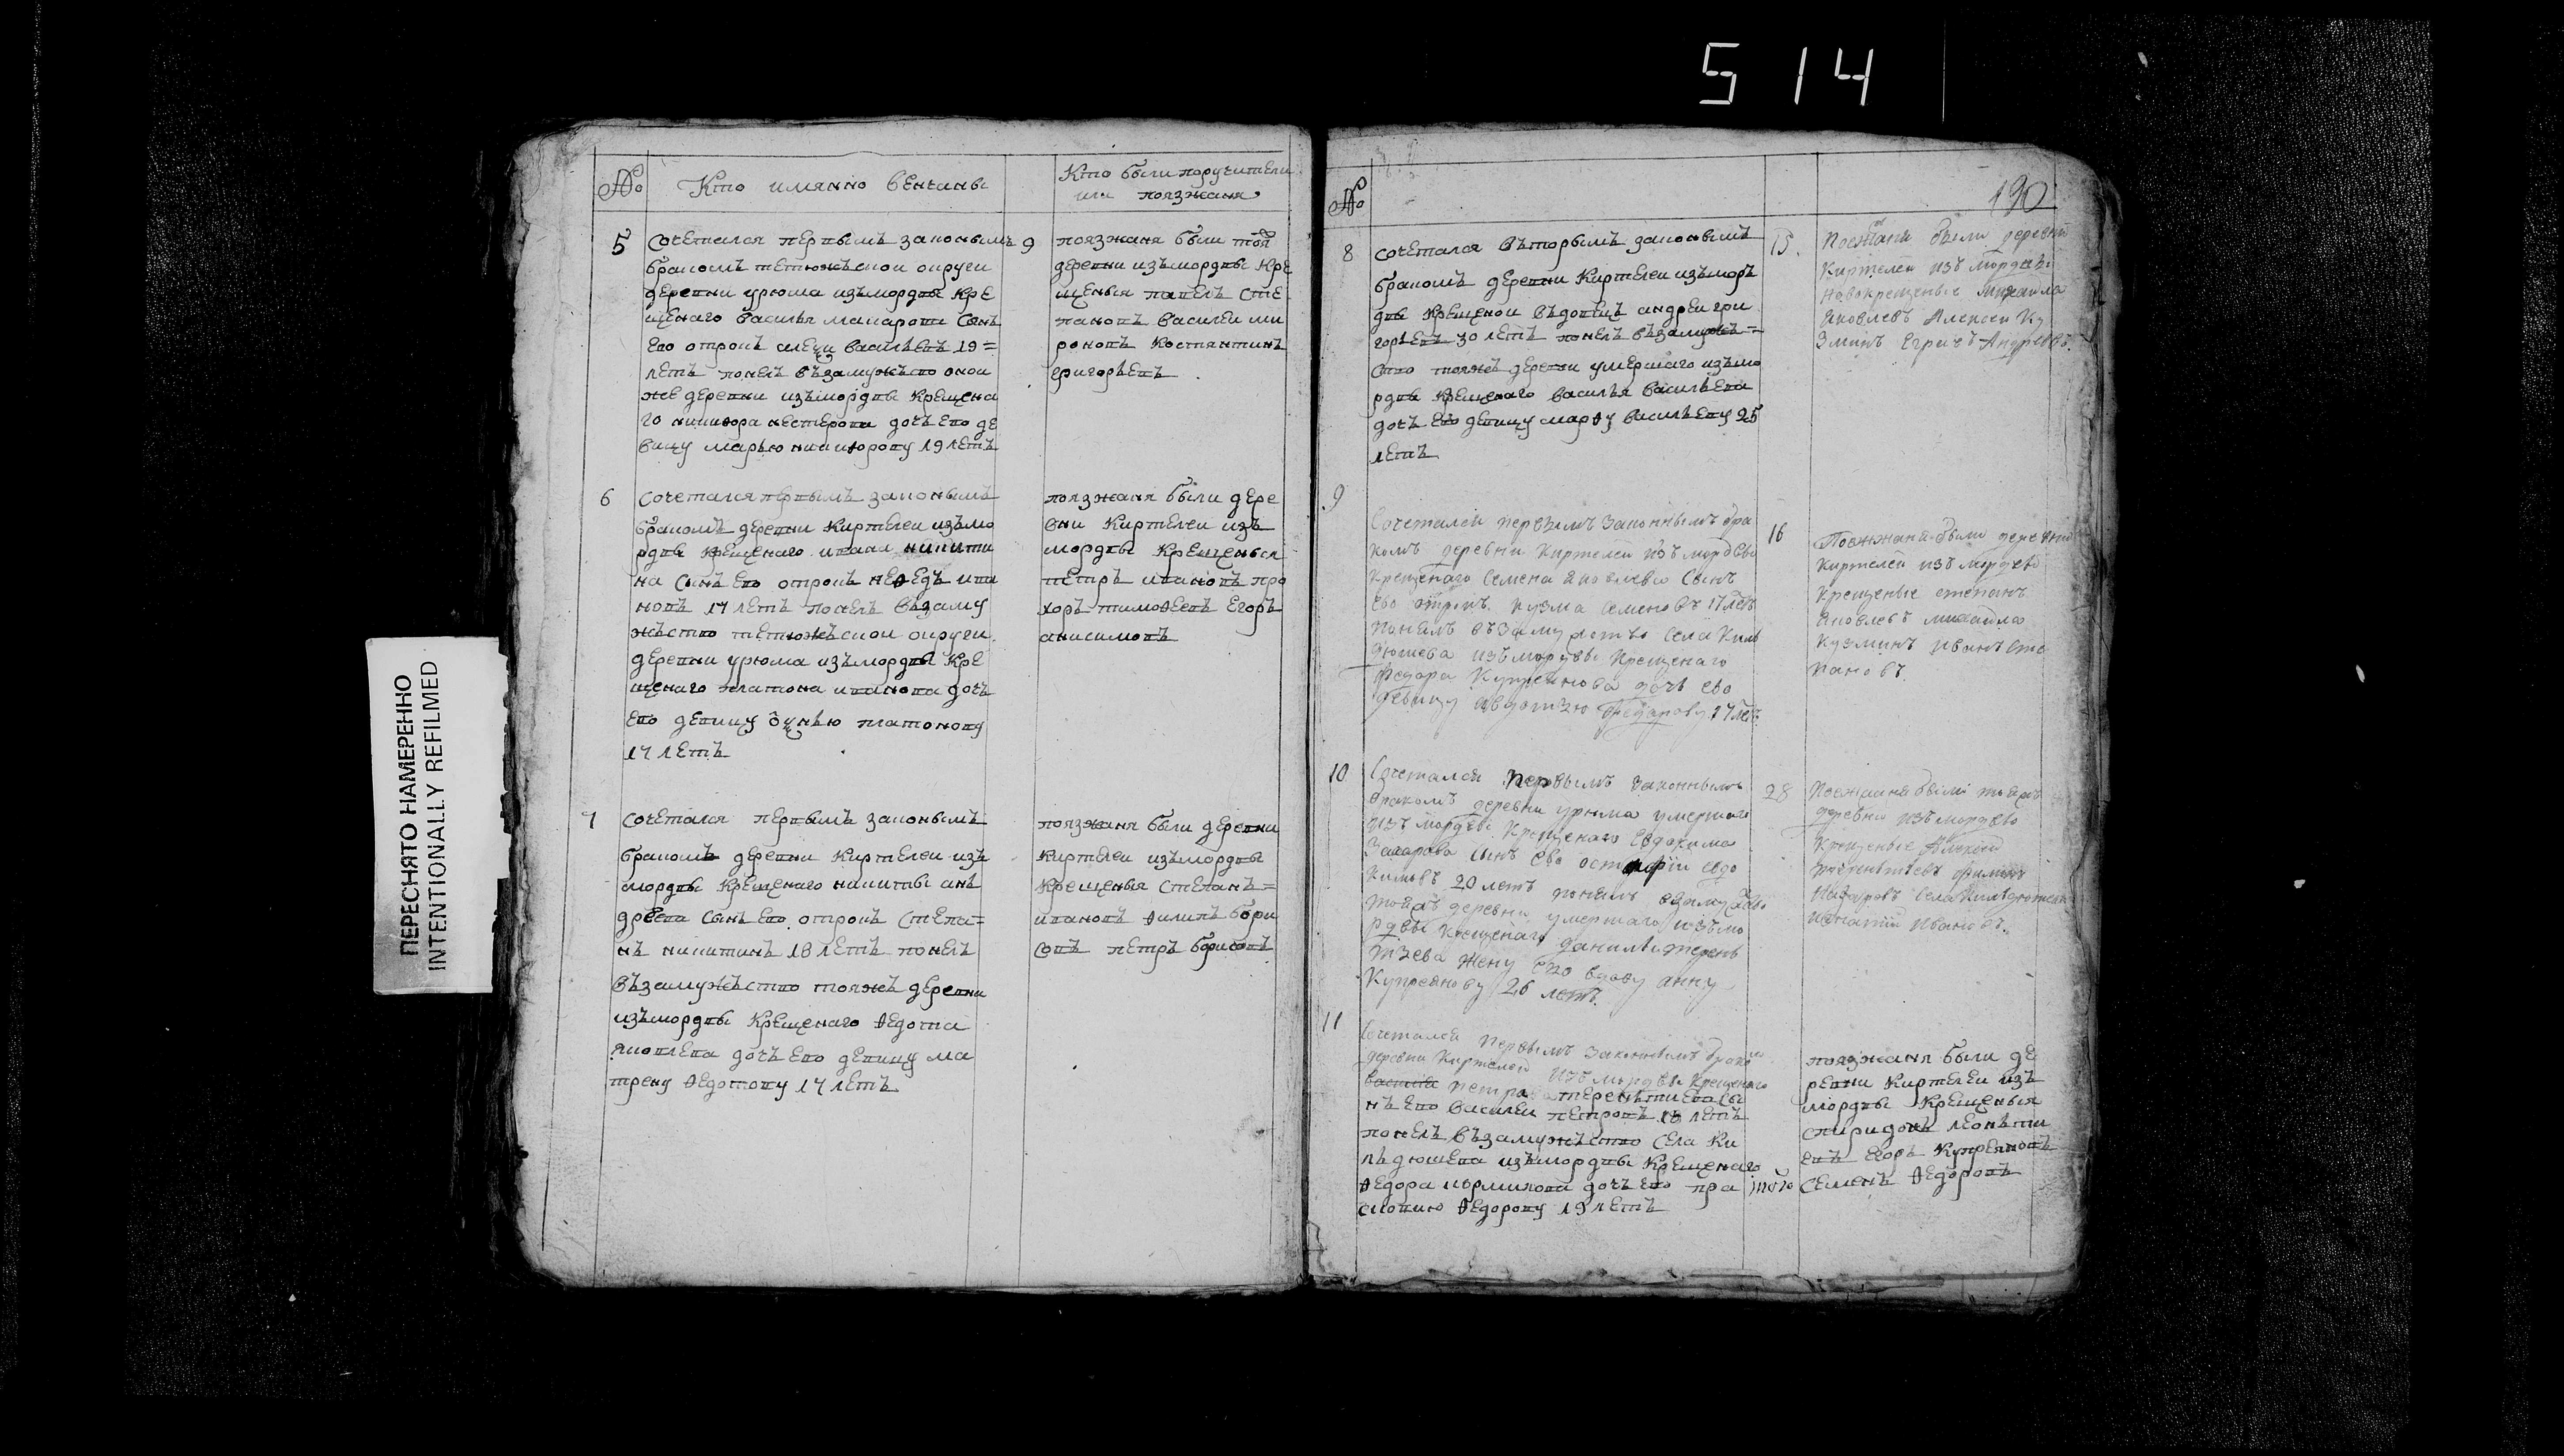 514
ПЕРЕСНЯТО НАМЕРЕННО
INTENTIONALLY REFILMED
№
Кто имянно венчаны
Кто были поручители
или поязжаня
5
сочетался первымъ законымъ
бракомъ тетюжъскои округи
деревни урюма изъмордвы кре
щенаго василья макарова сынъ
ево отрокъ васильевъ 19=
летъ понелъ възамужъство онои
же деревни изъмордвы крещена
го никиѳора нестерова дочь ево де
вицу марью никиѳорову 19 летъ
9
поязжаня были тоя
деревни изъмордвы кре
щеныя павелъ сте
пановъ василеи ми
роновъ костянтинъ
григорьевъ
6
сочетался первымъ законымъ
бракомъ деревни Киртелеи изъмо
рдвы крещенаго ивана никити
на сынъ ево отрокъ неѳедъ ива
новъ 17 летъ понелъ възаму
жъство тетюжъскои округи
деревни урюма изъмордвы кре
щенаго платона иванова дочь
ево девицу платонову
17 летъ
поязжаня были дере
вни Киртелеи изъ
мордвы крещеныя
петръ ивановъ про
хоръ тимоѳеевъ егоръ
анисимовъ
7
сочетался первымъ законымъ
бракомъ деревни Киртелеи изъ
мордвы крещенаго никиты анъ
дреева сынъ ево отрокъ степа=
нъ никитинъ 18 летъ понелъ
възамужъство тояжъ деревни
изъмордвы крещенаго ѳедота
яковлева дочь ево девицу ма
трену ѳедотову 17 летъ
поязжаня были деревни
Киртелеи изъмордвы
крещеныя степанъ=
ивановъ ѳилипъ бори
совъ петръ борисовъ
№
190
8
сочетался въторымъ законымъ
бракомъ деревни Киртелеи изъморъ
двы крещенои въдовецъ андреи гри
горьевъ 30 летъ понелъ възамужъ=
ство тояжъ деревни умершаго изъмо
рдвы крещенаго василья васильева
дочь ево девицу марѳу васильеву 25
летъ
15.
были деревни
Киртелеи изъ мордвы
новокрещеные михаила
яковлевъ Алексеи Ку
зминъ Андреевъ.
9
Сочетался первымъ законнымъ бра
комъ деревни Киртелеи изъ мордвы
крещенаго Семена яковлева сынъ
ево отрокъ кузма семеновъ 17 летъ
понелъ въ села Киль
дюшева изъ мордвы крещенаго
Федора Купреянова дочь ево
девицу авдотью Федорову 17 летъ
16
были деревни
киртелеи изъ мордвы
крещеные степанъ
яковлевъ михаила
кузминъ иванъ сте
пановъ.
10
Сочетался первымъ законнымъ
бракомъ деревни урюма умершаго
изъ мордвы крещенаго Евдокима
Захарова сынъ ево евдо
кимовъ 20 летъ понелъ
тояжъ деревни умершаго изъ мо
рдвы крещенаго данилы терень
тьева жену ево вдову анну
Купреянову 26 летъ.
28
были тояжъ
деревни изъ мордвы
крещеные Алексеи
села
игнатии ивановъ.
11
Сочетался первымъ законнымъ
деревни Киртелеи изъ мордвы крещенаго
петра терентиева сы
нъ ево василеи петровъ 18 летъ
понелъ възамужъство села ки
льдюшева изъмордвы крещенаго
ѳедора дочь ево пра
сковию ѳедорову 19 летъ
того
поязжаня были де
ревни киртелеи изъ
мордвы крещеныя
спиридонъ леонъти
евъ егоръ купреяновъ
семенъ ѳедоровъ